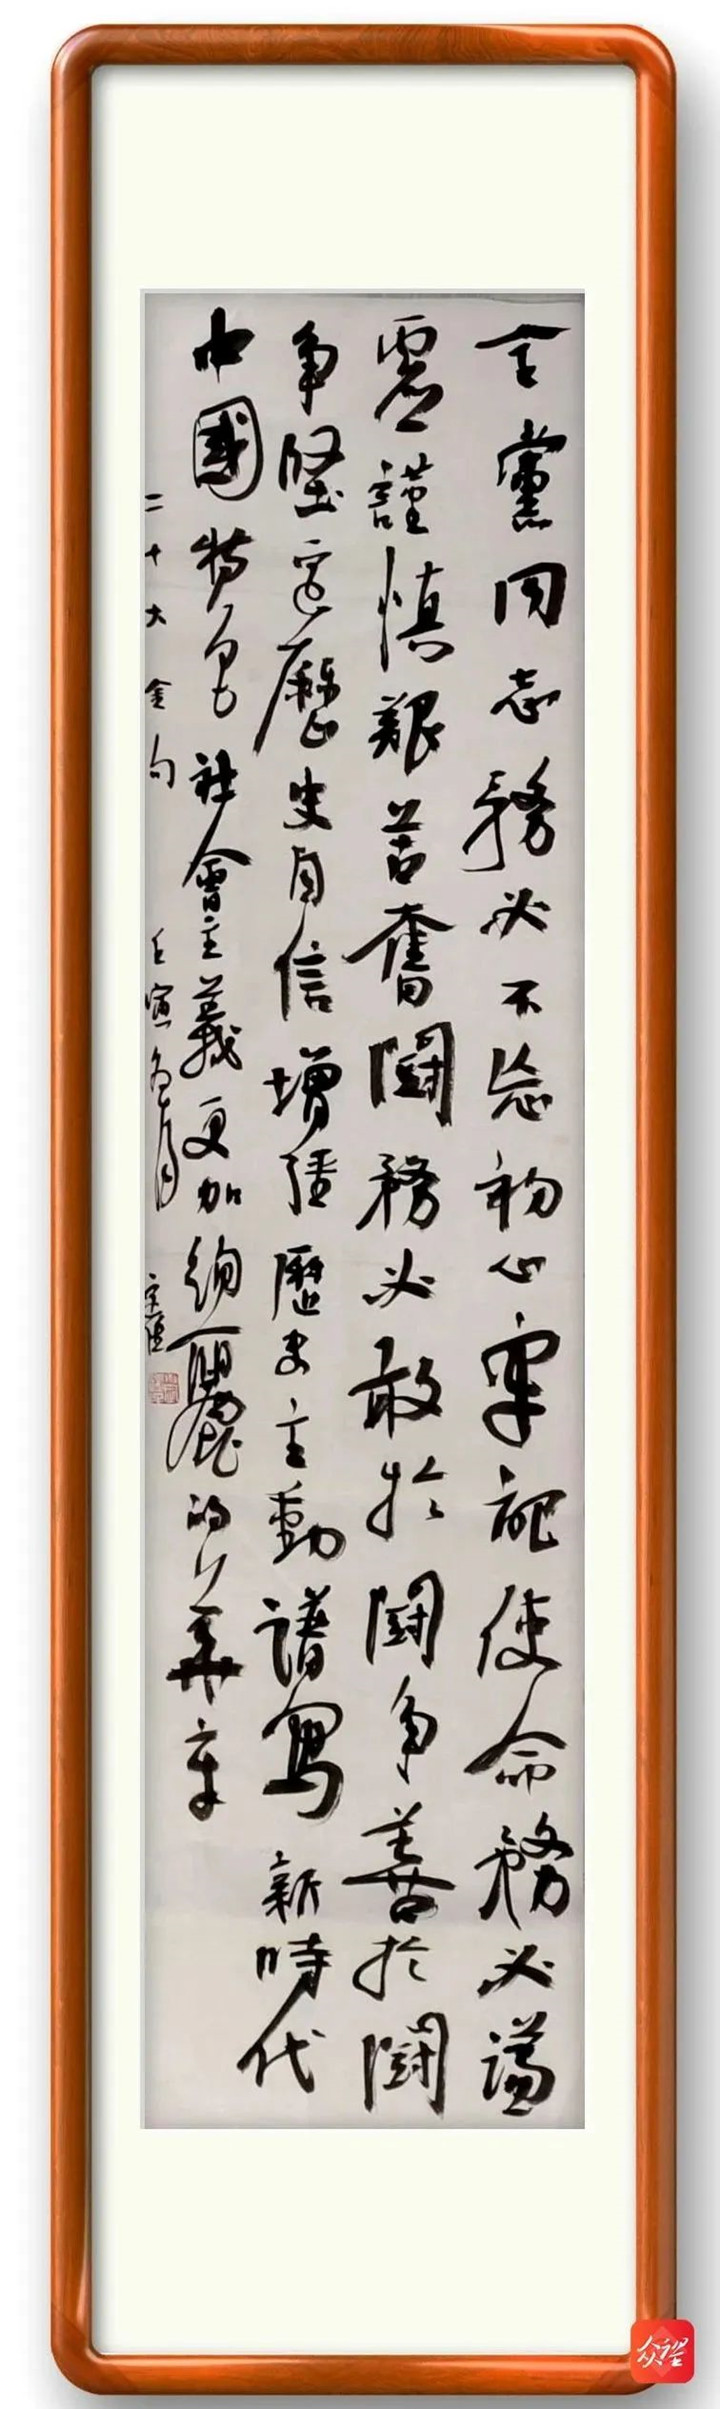 全黨同志務必不忘初心牢記使命務必謙
虛謹慎艱苦奮鬪務必敢於鬪爭善於鬪
爭堅定歷史自信增強歷史主動譜寫新時代
中國特色社會主義更加絢麗的華章
二十大金句 壬寅冬月
众望